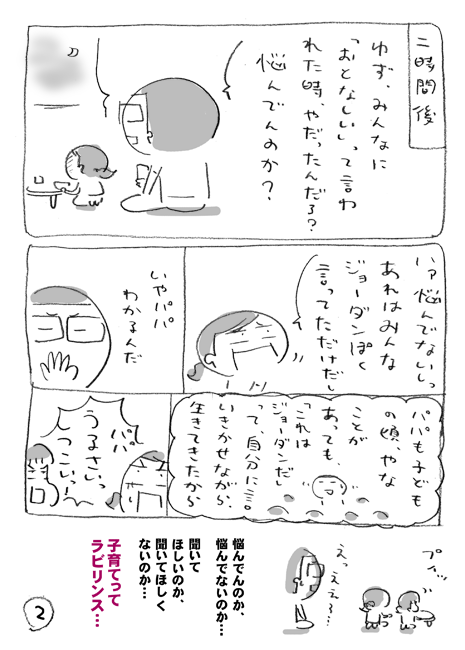 二時間後
ゆず、みんなに
「おとなしい」って言わ
れた時、やだったんだろ?
悩んでんのか?
いや悩んでないしっ
あれはみんな
ジョーダンぽく
言ってただけだし
いやパパ
わかるんだ
パパも子ども
の頃、やな
ことが
あっても、
「これは
ジョーダンだ」
って、自分に言
いきかせながら、
生きてきたから
パパ
うるさいっ
つこいっ!
プイッ
えっええ〜…
悩んでんのか、
悩んでないのか…
聞いて
ほしいのか、
聞いてほしく
ないのか…
子育てって
ラビリンス…
2